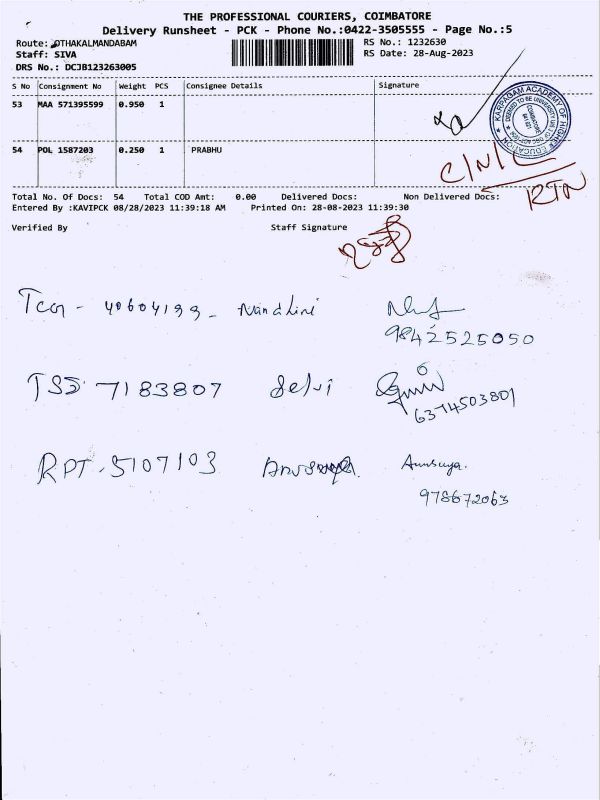 THE PROFESSIONAL COURIERS, COIMBATORE
Delivery Runsheet - PCK - Phone No.:0422-3505555 - Page No.:5
Route: OTHAKALMANDABAM
RS No.: 1232630
Staff: SIVA
RS Date: 28-Aug-2023
DRS No.: DCJB123263005
S No Consignment No Weight PCS Consignee Details Signature
53 MAA 571395599 0.950 1
KARPAGAM ACADEMY OF HIGHER EDUCATION
54 POL 1587203 0.250 1 PRABHU
C/N/C
RTN
Total No. Of Docs: 54 Total COD Amt: 0.00 Delivered Docs: Non Delivered Docs:
Entered By :KAVIPCK 08/28/2023 11:39:18 AM Printed On: 28-08-2023 11:39:30
Verified By Staff Signature
40604199 - Nandhini
9842525050
TSS 7183807 Selvi
6374503801
RPT - 5107103 Anusuya. Anusuya.
978672063